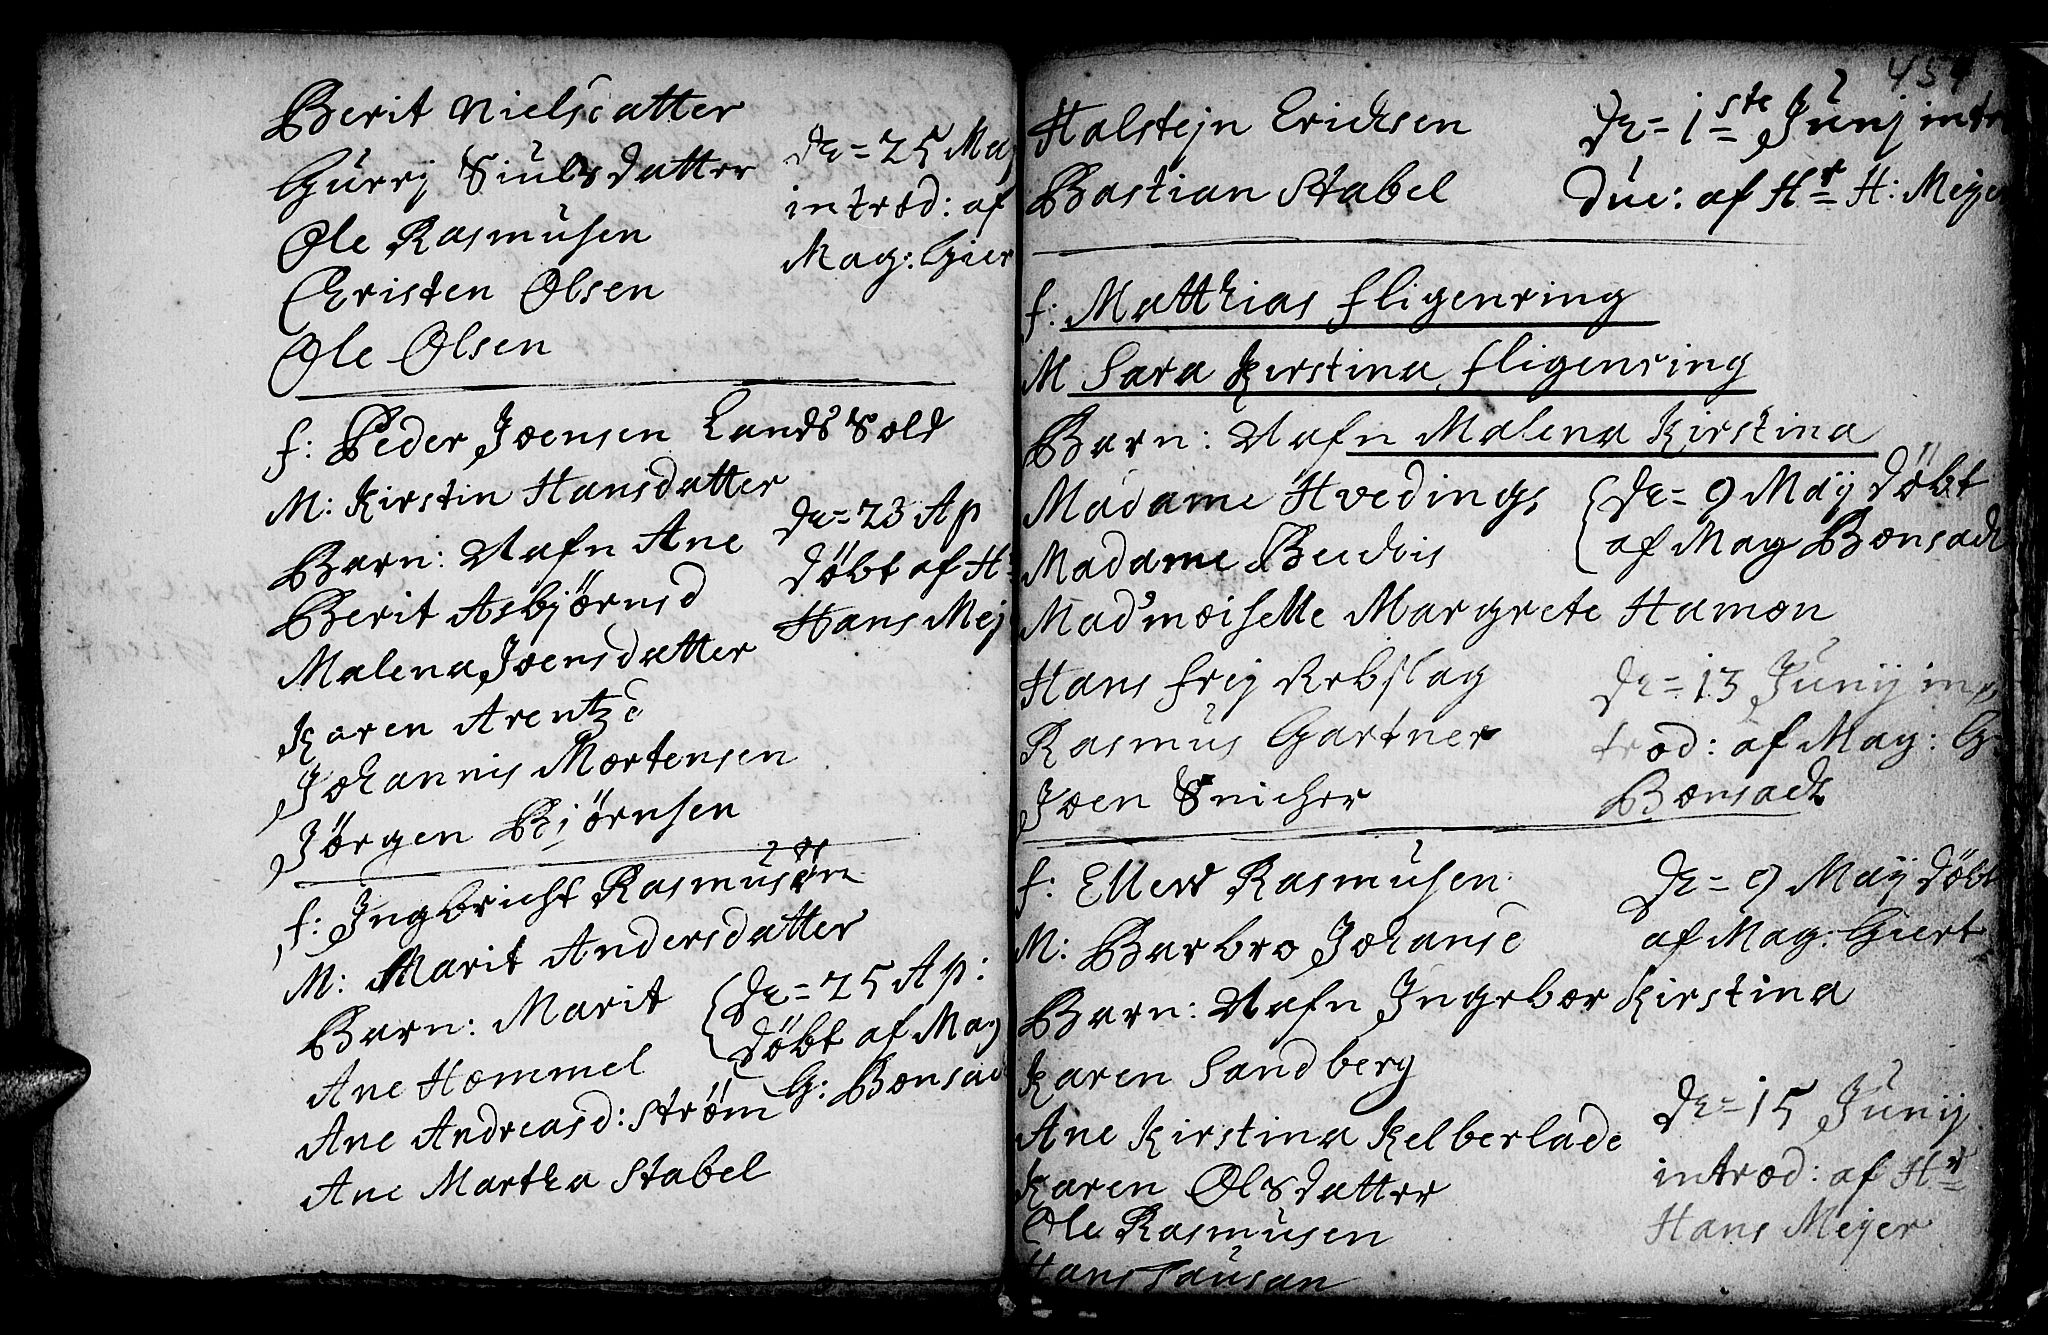 Berit Nielsdatter
Gurrj Siulsdatter
Ole Rasmusen
Christen Olsen
Ole Olsen
dn= 25 Maj
introd: af
Mag: Gier
f: Peder Joensen Lands Sold
M: Kirstin Hansdatter
Barn: Nafn Ane
Berit Asbjørnsd
Malena Joensdatter
Karen Arentzd
Johannis Mortensen
Jørgen Bjørnsen
dn= 23 Ap
døbt af Hr
Hans Mej
f: Ingbricht Rasmusøn
M: Marit Andersdatter
Barn: Marit
Ane Hommel
Ane Andreasd: Strøm
Ane Martha Stabel
dn= 25 Ap:
døbt af Mag
G: Bonsac
454
Holstejn Ericksen
Bastian Stabel
dn= 1ste Junj intro
due: af Hr H: Mejer
f: Matthias Fligenring
M Sara Kirstina Fligenring
Barn: Nafn Malena Kirstina
Madame Hvedings
Madame
Mad'moiselle Margrete Hamon
Hans Frij Rebslag
Rasmus Gartner
Joen Snicher
dn= 9 Maij døbt
af Mag Bonsack
dn= 13 Junij in
trod: af Mag: G
Bonsack
f: Ellew Rasmusen
M: Barbro Johansd
Barn: Nafn Ingebor Kirstina
Karen Sandberg
Ane Kirstina Kelberlade
Karen Olsdatter
Ole Rasmusen
Hans Sausan
dn= 9 Maij døbt
af Mag: Giert
dn= 15 Junij
introd: af Hr
Hans Mejer